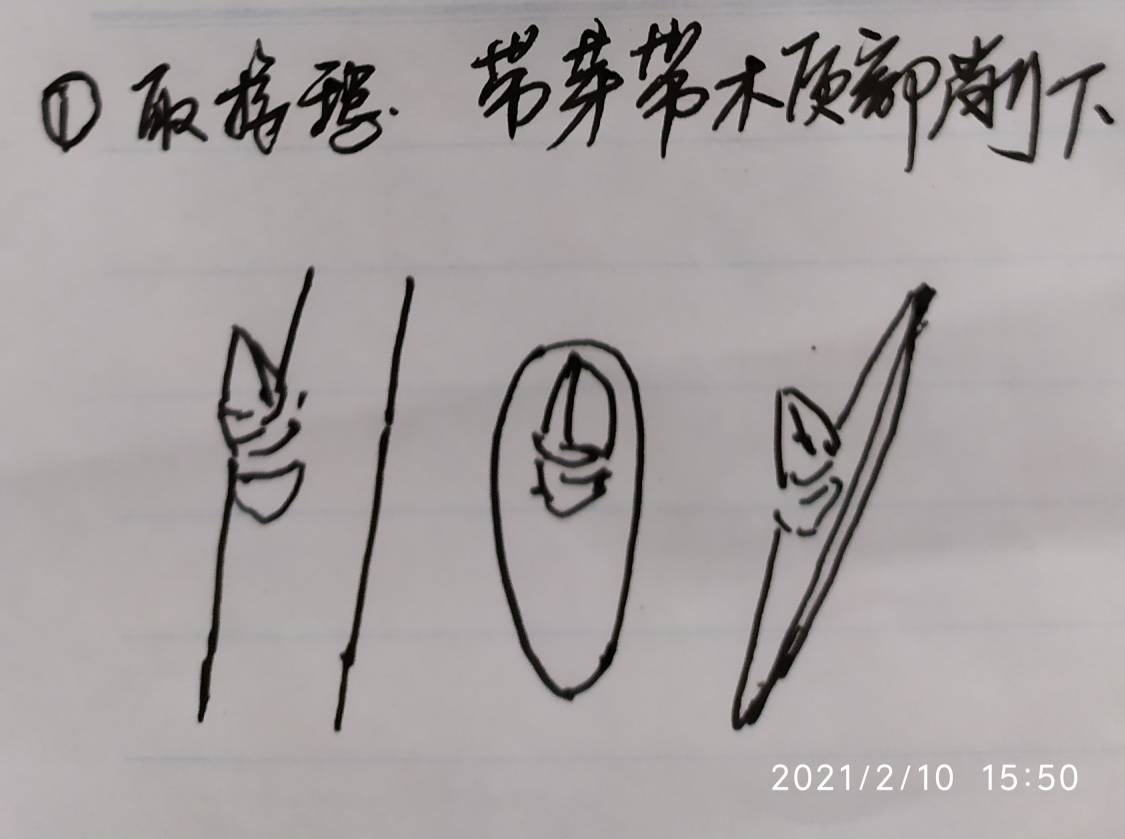 ① 取接穗. 带芽带木质部削下
2021/2/10 15:50